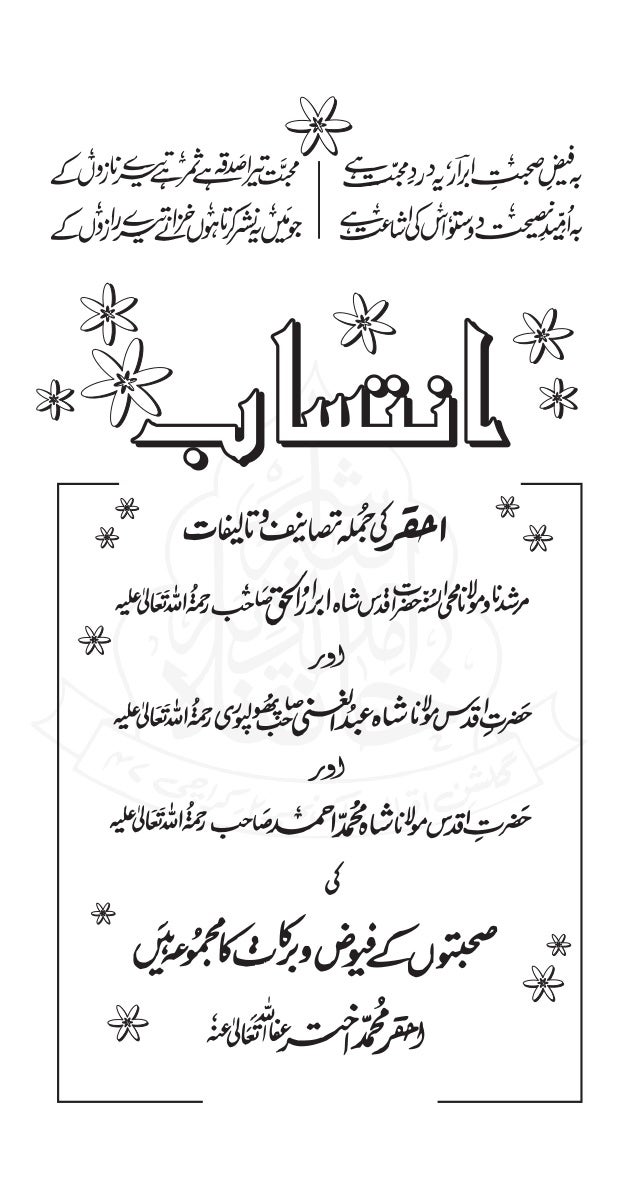 بہ فیضِ صحبتِ ابرارؔ یہ دردِ محبت ہے محبت تیرا صدقہ ہے ثمر ہے تیرے نازوں کے
بہ اُمیدِ نصیحت دوستو اس کی اشاعت ہے جو میں یہ نشر کرتا ہوں خزانے تیرے رازوں کے
انتساب
احقر کی جملہ تصانیف و تالیفات
مرشدنا و مولانا محی السنہ حضرت اقدس شاہ ابرارالحق صاحب رحمۃ اللہ تعالیٰ علیہ
اور
حضرت اقدس مولانا شاہ عبدالغنی صاحب پھولپوری رحمۃ اللہ تعالیٰ علیہ
اور
حضرت اقدس مولانا شاہ محمد احمد صاحب رحمۃ اللہ تعالیٰ علیہ
کی
صحبتوں کے فیوض و برکات کا مجموعہ ہیں
احقر محمد اختر عفا اللہ تعالیٰ عنہ